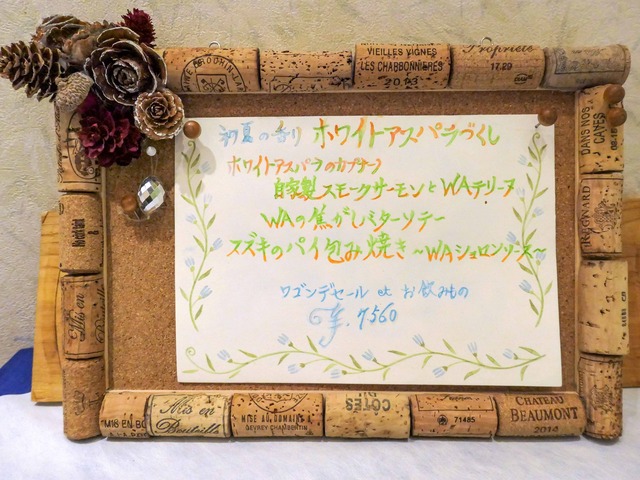 VIEILLES VIGNES
LES CHARBONNIERES
2013
Propriété
17.29
DANS NOS
CAVES
初夏の香り ホワイトアスパラづくし
ホワイトアスパラのカプチーノ
自家製スモークサーモンとWAテリーヌ
WAの焦がしバターソテー
スズキのパイ包み焼き ~WAショロンソース~
ワゴンデセール et お飲みもの
¥.7560
Mis en
Bouteille
MIS EN BO
Mis en
Bouteille
MISE AU DOMAINE
GEVREY CHAMBERTIN
CÔTES
71485
CHATEAU
BEAUMONT
2014